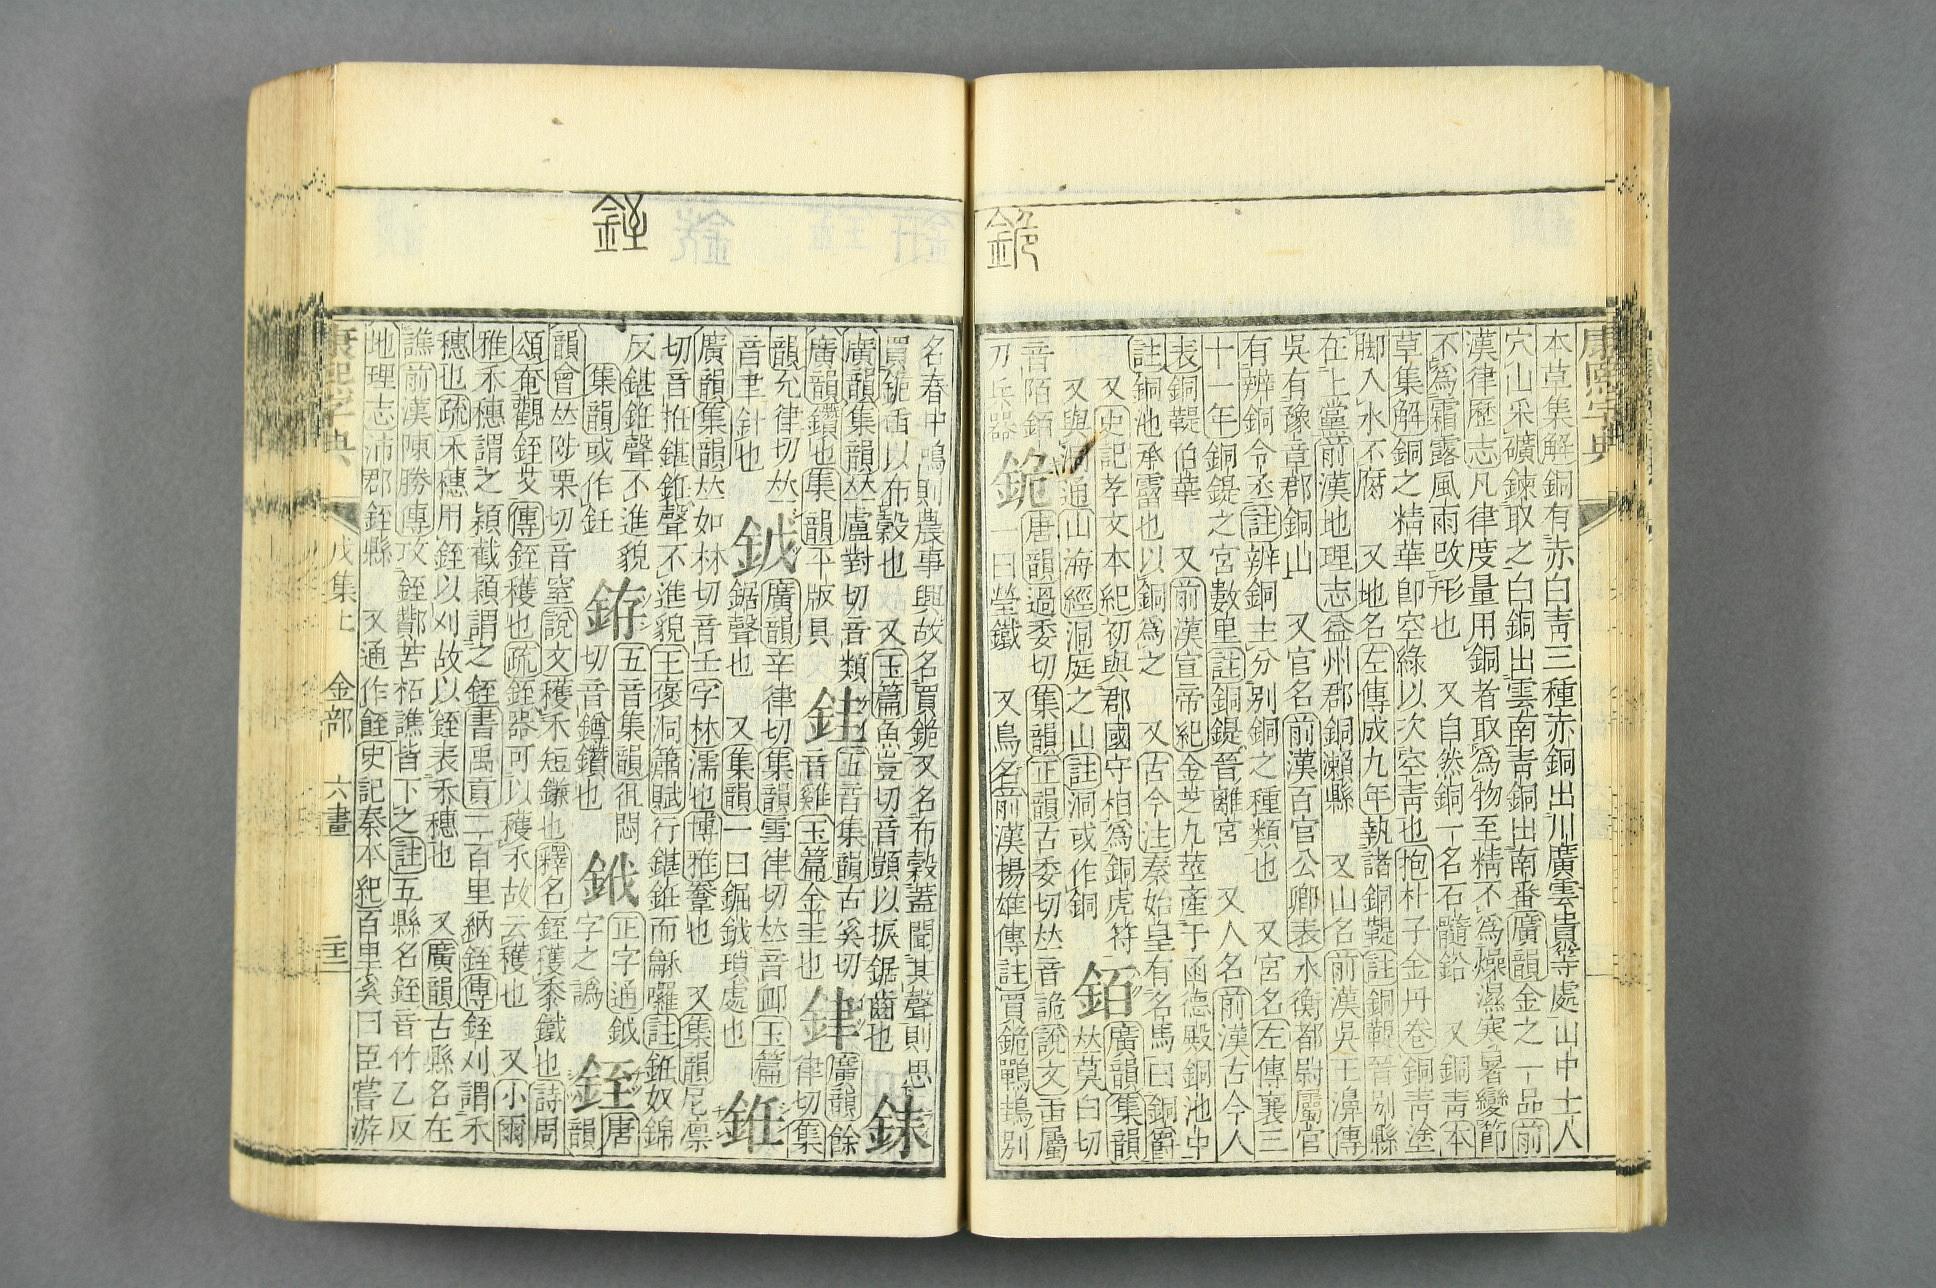 康熙字典
銫
本草集解銅有赤白靑三種赤銅出川廣雲貴等處山中土人
穴山采礦鍊取之白銅出雲南靑銅出南番廣韻金之一品前
漢律歷志凡律度量用銅者取爲物至精不爲燥濕寒暑變節
不爲霜露風雨改形也 又自然銅一名石髓鉛 又銅靑本
草集解銅之精華卽空綠以次空靑也抱朴子金丹卷銅靑塗
脚入水不腐 又地名左傳成九年執諸銅鞮註銅鞮晉别縣
在上黨前漢地理志益州郡銅瀨縣 又山名前漢吳王濞傳
吳有豫章郡銅山 又官名前漢百官公卿表水衡都尉屬官
有辨銅令丞註辨銅主分别銅之種類也 又宮名左傳襄三
十一年銅鍉之宮數里註銅鍉晉離宮 又人名前漢古今人
表銅鞮伯華 又前漢宣帝紀金芝九莖產于函德殿銅池中
註銅池承霤也以銅爲之 又古今注秦始皇有名馬曰銅爵
又史記孝文本紀初與郡國守相爲銅虎符 銆 廣韻集韻
又與洞通山海經洞庭之山註洞或作銅 𠀤莫白切
音陌銆 䤥 唐韻過委切集韻正韻古委切𠀤音詭說文臿屬
刀兵器 一曰瑩鐵 又鳥名前漢揚雄傳註買䤥鶗鴂别
銍
名春中鳴則農事興故名買䤥又名布穀蓋聞其聲則思 銇
買䤥臿以布穀也 又玉篇魚豈切音顗以掁鋸齒也
廣韻集韻𠀤盧對切音類 銈 五音集韻古奚切 銉 廣韻餘
廣韻鑽也集韻平版具 音雞玉篇金圭也 律切集
韻允律切𠀤 銊 廣韻辛律切集韻雪律切𠀤音卹玉篇 銋
音聿針也 鋸聲也 又集韻一曰鋸銊瑣處也
廣韻集韻𠀤如林切音壬字林濡也博雅韏也 又集韻尼凛
切音拰鍖銋聲不進貌王褒洞簫賦行鍖銋而龢囉註銋奴錦
反鍖銋聲不進貌 銌 五音集韻徂悶 正字通鉞 銍 唐
集韻或作飪 切音鐏鑽也 字之譌 韻
韻會𠀤陟栗切音窒說文穫禾短鎌也釋名銍穫黍鐵也詩周
頌奄觀銍艾傳銍穫也疏銍器可以穫禾故云穫也 又小爾
雅禾穗謂之穎截穎謂之銍書禹貢二百里納銍傳銍刈謂禾
穗也疏禾穗用銍以刈故以銍表禾穗也 又廣韻古縣名在
譙前漢陳勝傳攻銍酇苦柘譙皆下之註五縣名銍音竹乙反
地理志沛郡銍縣 又通作䬹史記秦本紀百里奚曰臣嘗游
康熙字典 戌集上 金部 六畫